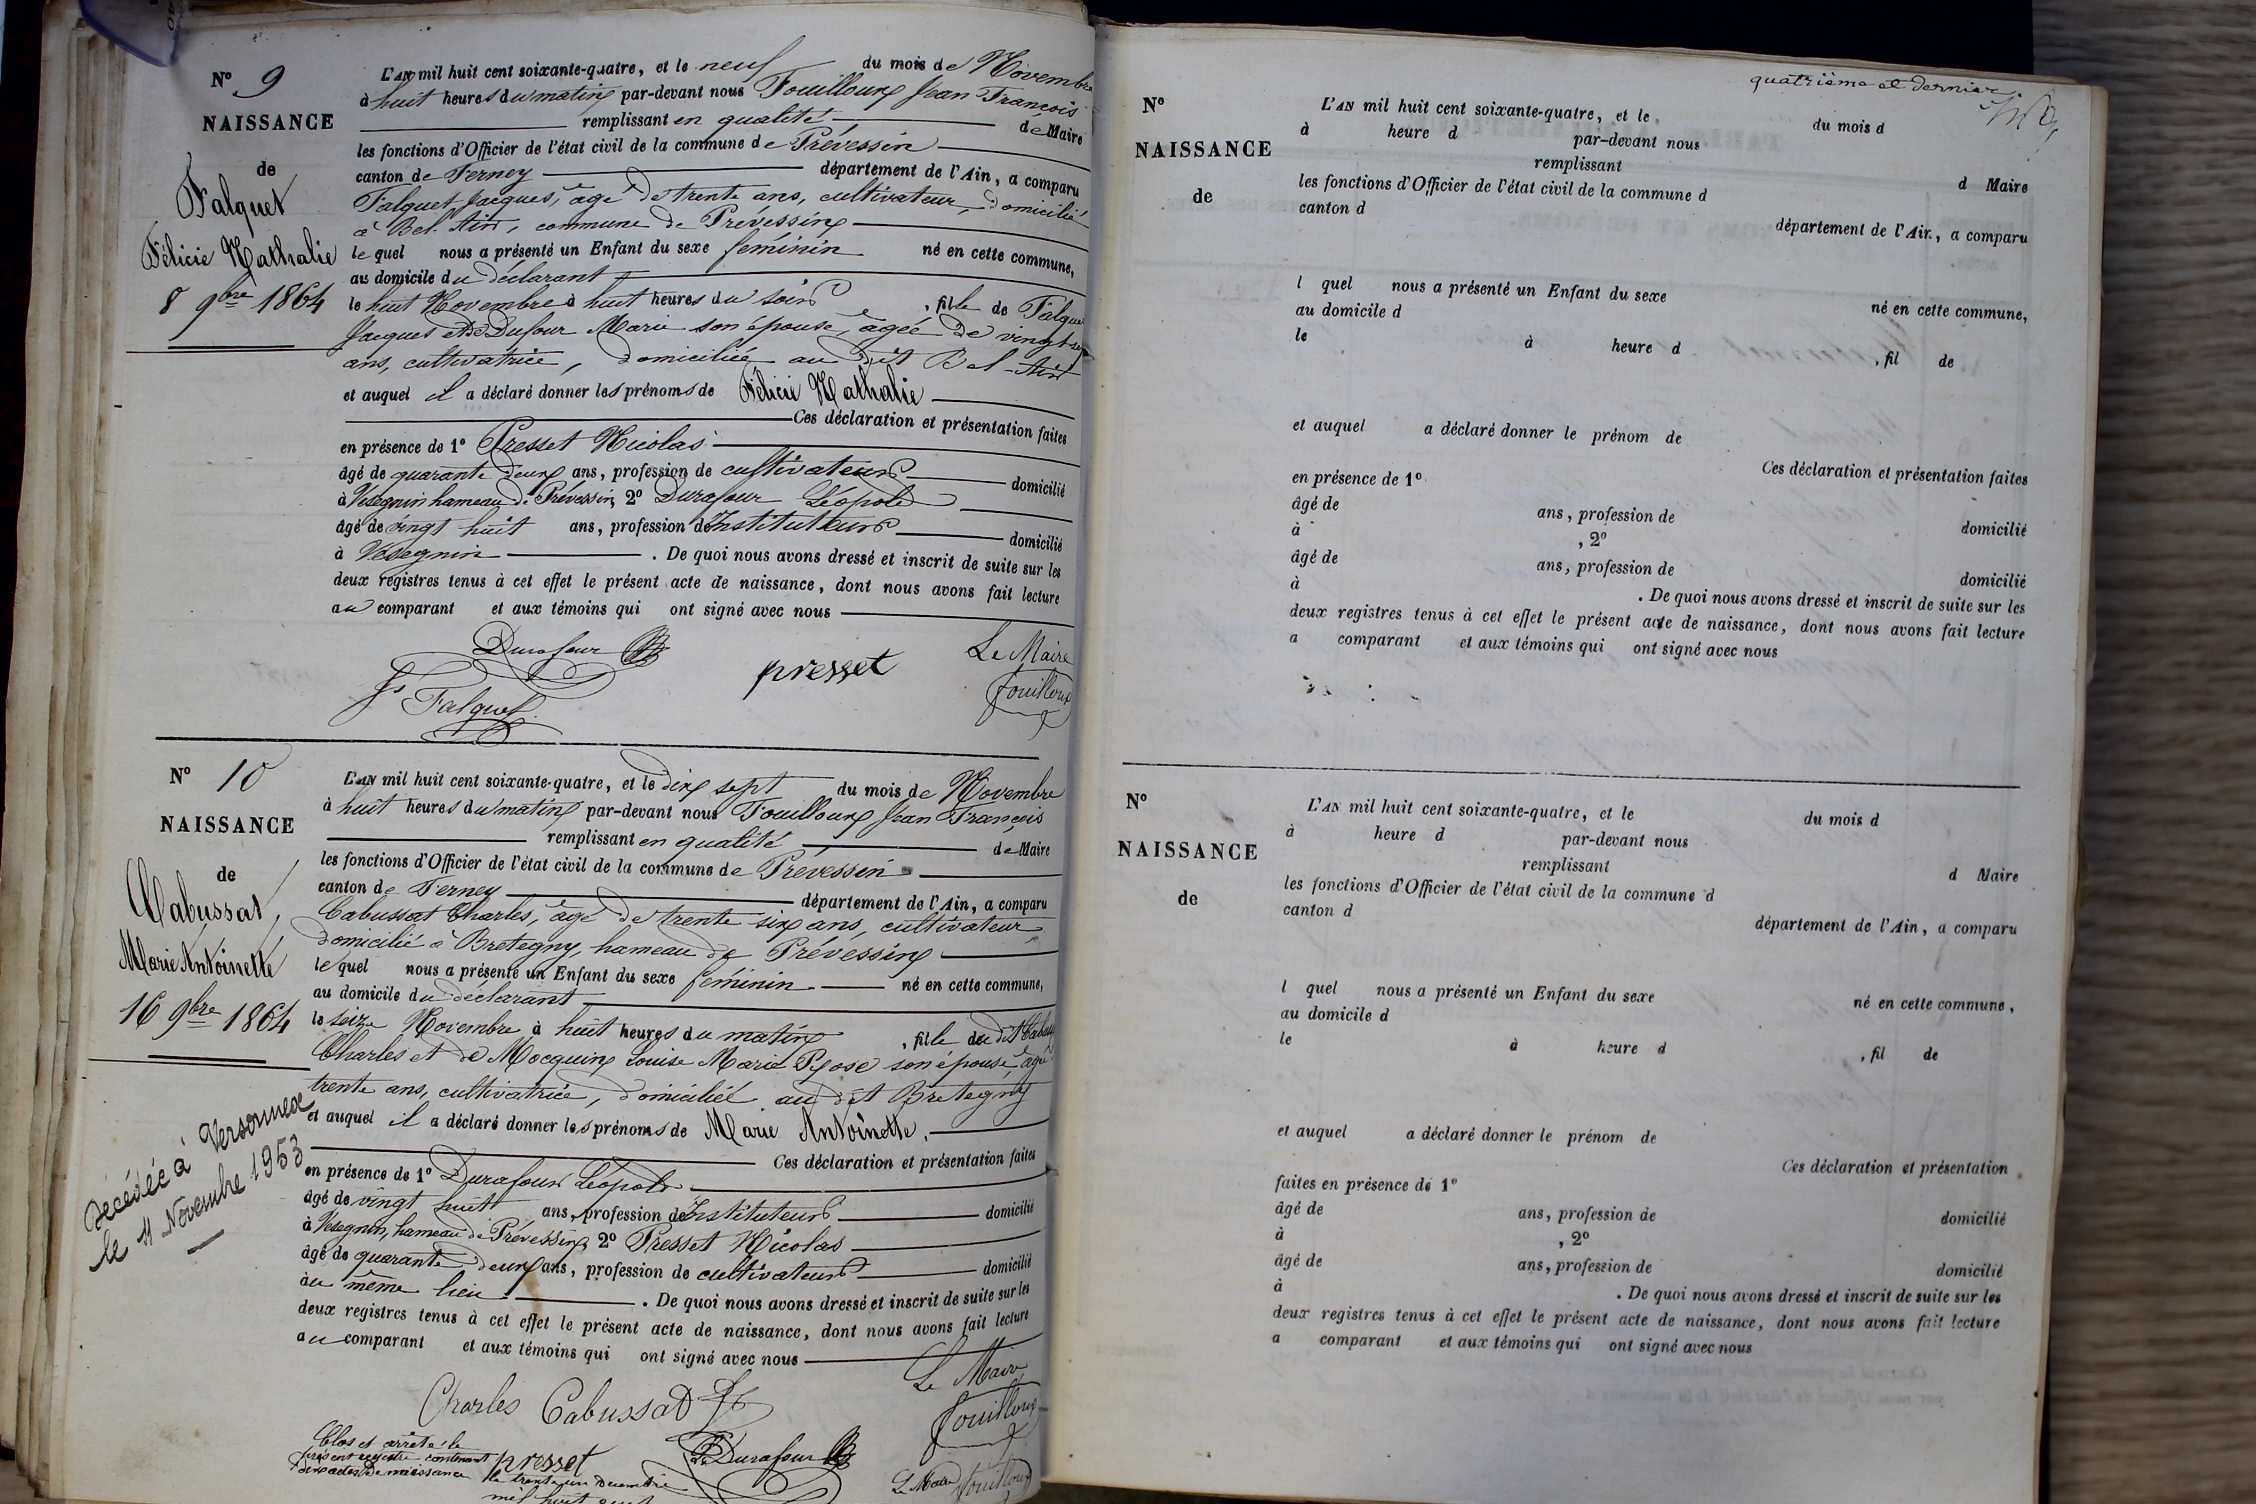 N° 9
NAISSANCE
de
Falquet
Félicie Nathalie
8 9bre 1864
L'AN mil huit cent soixante-quatre, et le neuf du mois de Novembre
à huit heures du matin par-devant nous Fouilloux Jean François
remplissant en qualité de Maire
les fonctions d'Officier de l'état civil de la commune de Prévessin
canton de Ferney département de l'Ain, a comparu
Falquet Jacques, âgé de trente ans, cultivateur, domicilié
à Bel-Air, commune de Prévessin
le quel nous a présenté un Enfant du sexe féminin né en cette commune,
au domicile du déclarant
le huit Novembre à huit heures du soir, fille de Falquet
Jacques et de Dufour Marie son épouse, âgée de vingt
ans, cultivatrice, domiciliée au dit Bel-Air
et auquel il a déclaré donner les prénoms de Félicie Nathalie
Ces déclaration et présentation faites
en présence de 1° Presset Nicolas
âgé de quarante deux ans, profession de cultivateur domicilié
à Vésegnin hameau de Prévessin, 2° Durafour Léopold
âgé de vingt huit ans, profession d'Instituteur domicilié
à Vésegnin. De quoi nous avons dressé et inscrit de suite sur les
deux registres tenus à cet effet le présent acte de naissance, dont nous avons fait lecture
au comparant et aux témoins qui ont signé avec nous
Durafour Le Maire
presset Fouilloux
Js Falquet
N° 10
NAISSANCE
de
Cabussat
Marie Antoinette
16 9bre 1864
Décédée à Versonnex
le 11 Novembre 1953
L'AN mil huit cent soixante-quatre, et le dix sept du mois de Novembre
à huit heures du matin par-devant nous Fouilloux Jean François
remplissant en qualité de Maire
les fonctions d'Officier de l'état civil de la commune de Prévessin
canton de Ferney département de l'Ain, a comparu
Cabussat Charles, âgé de trente six ans, cultivateur
domicilié à Bretegny, hameau de Prévessin
le quel nous a présenté un Enfant du sexe féminin né en cette commune,
au domicile du déclarant
le seize Novembre à huit heures du matin, fille du dit Cabussat
Charles et de Mocquin Louise Marie son épouse, âgée
trente ans, cultivatrice, domiciliée au dit Bretegny
et auquel il a déclaré donner les prénoms de Marie Antoinette.
Ces déclaration et présentation faites
en présence de 1° Durafour Léopold
âgé de vingt huit ans, profession d'Instituteur domicilié
à Vésegnin, hameau de Prévessin, 2° Presset Nicolas
âgé de quarante deux ans, profession de cultivateur domicilié
au même lieu. De quoi nous avons dressé et inscrit de suite sur les
deux registres tenus à cet effet le présent acte de naissance, dont nous avons fait lecture
au comparant et aux témoins qui ont signé avec nous
Le Maire
Charles Cabussat Fouilloux
presset Durafour
Clos et arrêté le
présent registre contenant
dix actes de naissance le trente un Décembre
mil huit cent
Le Maire Fouilloux
quatrième et dernier
N°
NAISSANCE
de
L'AN mil huit cent soixante-quatre, et le du mois d
à heure d par-devant nous
remplissant d Maire
les fonctions d'Officier de l'état civil de la commune d
canton d département de l'Ain, a comparu
l quel nous a présenté un Enfant du sexe né en cette commune,
au domicile d
le à heure d , fil de
et auquel a déclaré donner le prénom de
Ces déclaration et présentation faites
en présence de 1°
âgé de ans, profession de domicilié
à , 2°
âgé de ans, profession de domicilié
à . De quoi nous avons dressé et inscrit de suite sur les
deux registres tenus à cet effet le présent acte de naissance, dont nous avons fait lecture
a comparant et aux témoins qui ont signé avec nous
N°
NAISSANCE
de
L'AN mil huit cent soixante-quatre, et le du mois d
à heure d par-devant nous
remplissant d Maire
les fonctions d'Officier de l'état civil de la commune d
canton d département de l'Ain, a comparu
l quel nous a présenté un Enfant du sexe né en cette commune,
au domicile d
le à heure d , fil de
et auquel a déclaré donner le prénom de
Ces déclaration et présentation
faites en présence de 1°
âgé de ans, profession de domicilié
à , 2°
âgé de ans, profession de domicilié
à . De quoi nous avons dressé et inscrit de suite sur les
deux registres tenus à cet effet le présent acte de naissance, dont nous avons fait lecture
a comparant et aux témoins qui ont signé avec nous